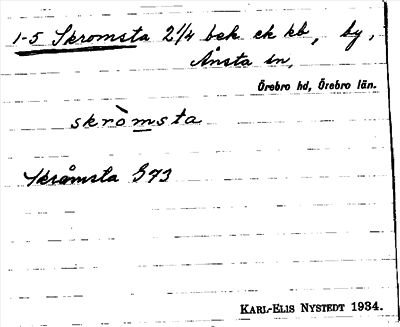 1-5 Skromsta 2 1/4 bek ek kb, by,
Ånsta sn,
Örebro hd, Örebro län.
skròmsta
Skråmsta G73
KARL-ELIS NYSTEDT 1934.